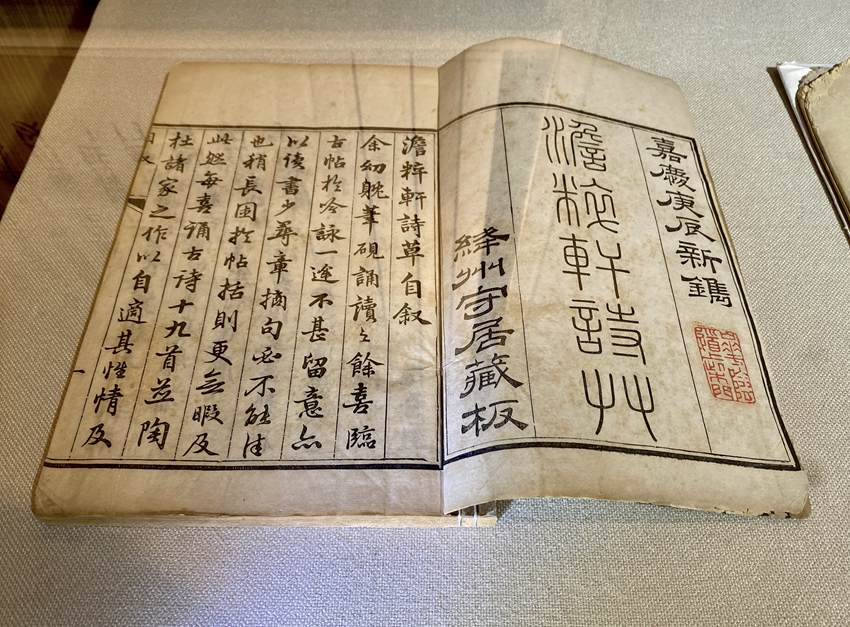 嘉慶庚辰新鐫
澹粹軒詩艸
絳州守居藏板
澹粹軒詩草自叙
余幼躭筆硯誦讀之餘喜臨
古帖於吟詠一途不甚留意亦
以读書少尋章摘句必不能佳
也稍長囿於帖括則更無暇及
此然每喜誦古诗十九首並陶
杜諸家之作以自適其性情及
一